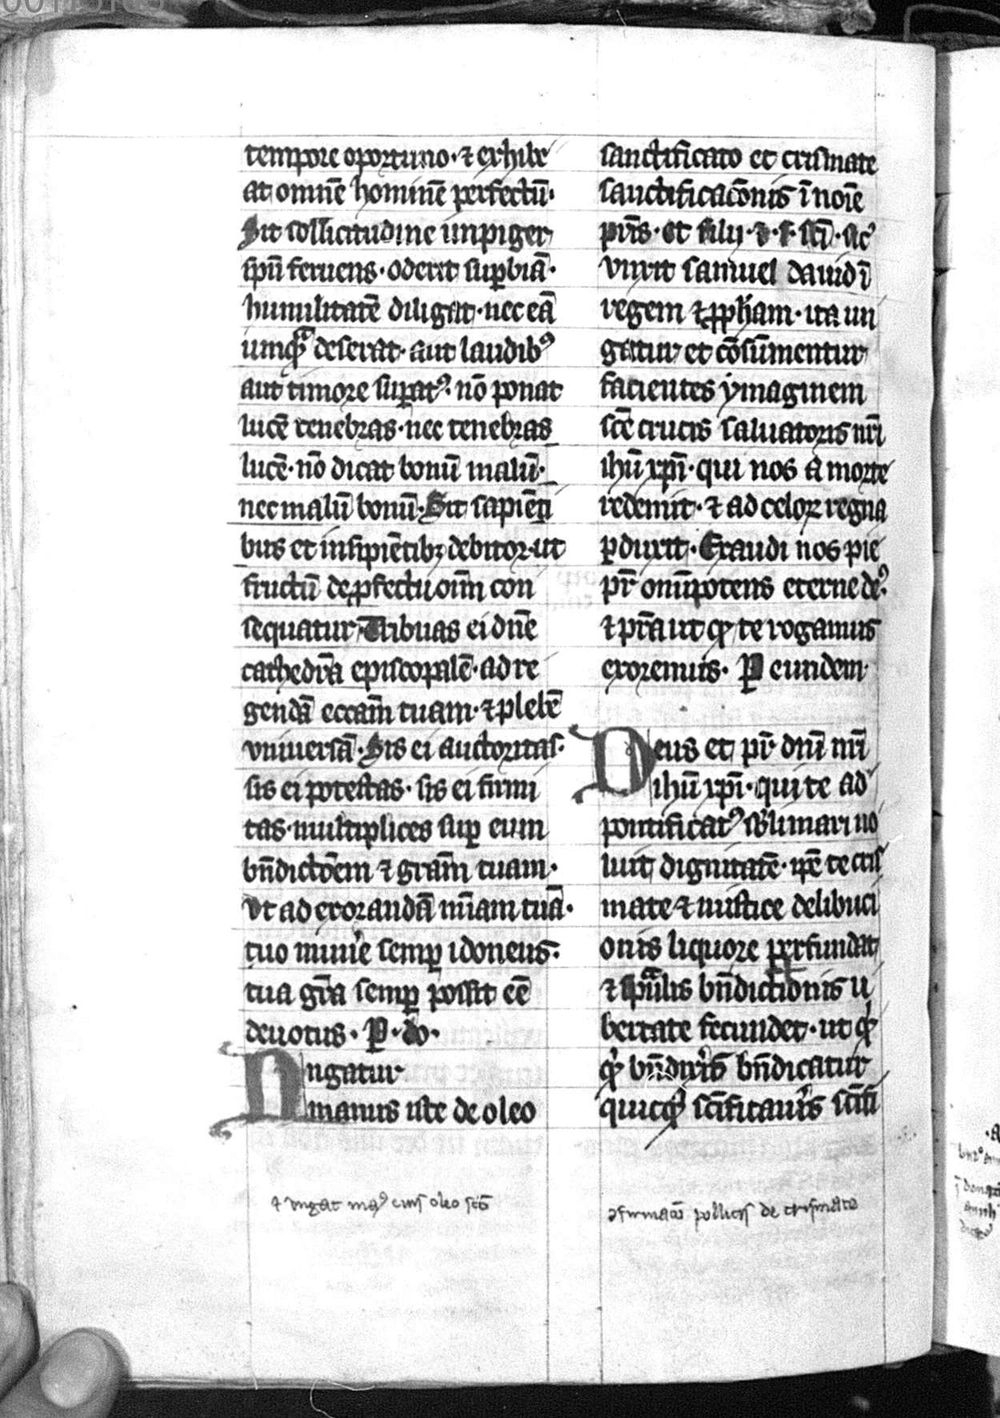 tempore oportuno · ⁊ exhibe
at omnē hominē perfectū ·
Sit sollicitudine inpiger
spū feruens · oderit suꝑbiā ·
humilitatē diligat · nec eā
umqᵃ̄ deserat · aut laudibꝰ
aut timore suꝑatꝰ · nō ponat
lucē tenebras · nec tenebras
lucē · nō dicat bonū malū ·
nec malū bonū · Sit sapiēti
bus et insipiētibꝫ debitor · ut
fructū de ꝓfectu oīm con
sequatur · Tribuas ei dn̄e
cathedrā episcopalē · ad re
gendā eccām tuam · ⁊ plebē
vniuersā · Sis ei auctoritas ·
sis ei potestas · sis ei firmi
tas · multiplices suꝑ eum
bn̄dictōem ⁊ grām tuam ·
vt ad exorandā mīam tuā ·
tuo munẽ semꝑ idoneus ·
tua grā semꝑ possit eē
deuotus · P · do ·
Ungatur
manus iste de oleo
sanctificato et crismate
sanctificacōnis ī noīe
pr̄is · et filij · ⁊ · s · scī · sicᵗ
vnxit samuel dauid ī
regem ⁊ ꝓpħam · ita un
gatur et cōsūmentur
facientes ymaginem
scē crucis saluatoris nr̄i
ihū xp̄i · qui nos a morte
redemit · ⁊ ad celoꝝ regna
ꝑduxit · Exaudi nos pie
pr̄ om̄ipotens eterne deꝰ ·
⁊ pr̄a ut qͦ te rogamus
exoremus · P eundem
Deus et pr̄ dn̄i nr̄i
ihū xp̄i · qui te ad
pontificatꝰ sb̾limari uo
luit dignitatē · ip̄e te cris
mate ⁊ mistice delibuci
onis liquore perfundat
⁊ sp̄ualis bn̄dictionis u
bertate fecundet · ut qͥc
qͥd bn̄dixĩs bn̄dicatur
quicqͥd scīficauĩs scīfi
⁊ ungat manꝰ eius oleo scō
ꝯfirmacō pollicis de crismate